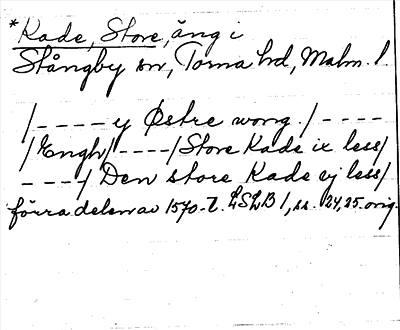 *Kade, Store, äng i
Stångby sn, Torna hd, Malm. l
/---- y Østre wong. /----
/Engh/ ----/ Store Kade ix less/
----/ Den store Kade vj less/
förra delen av 1570-t. LSLB 1, ss. 24, 25. orig.